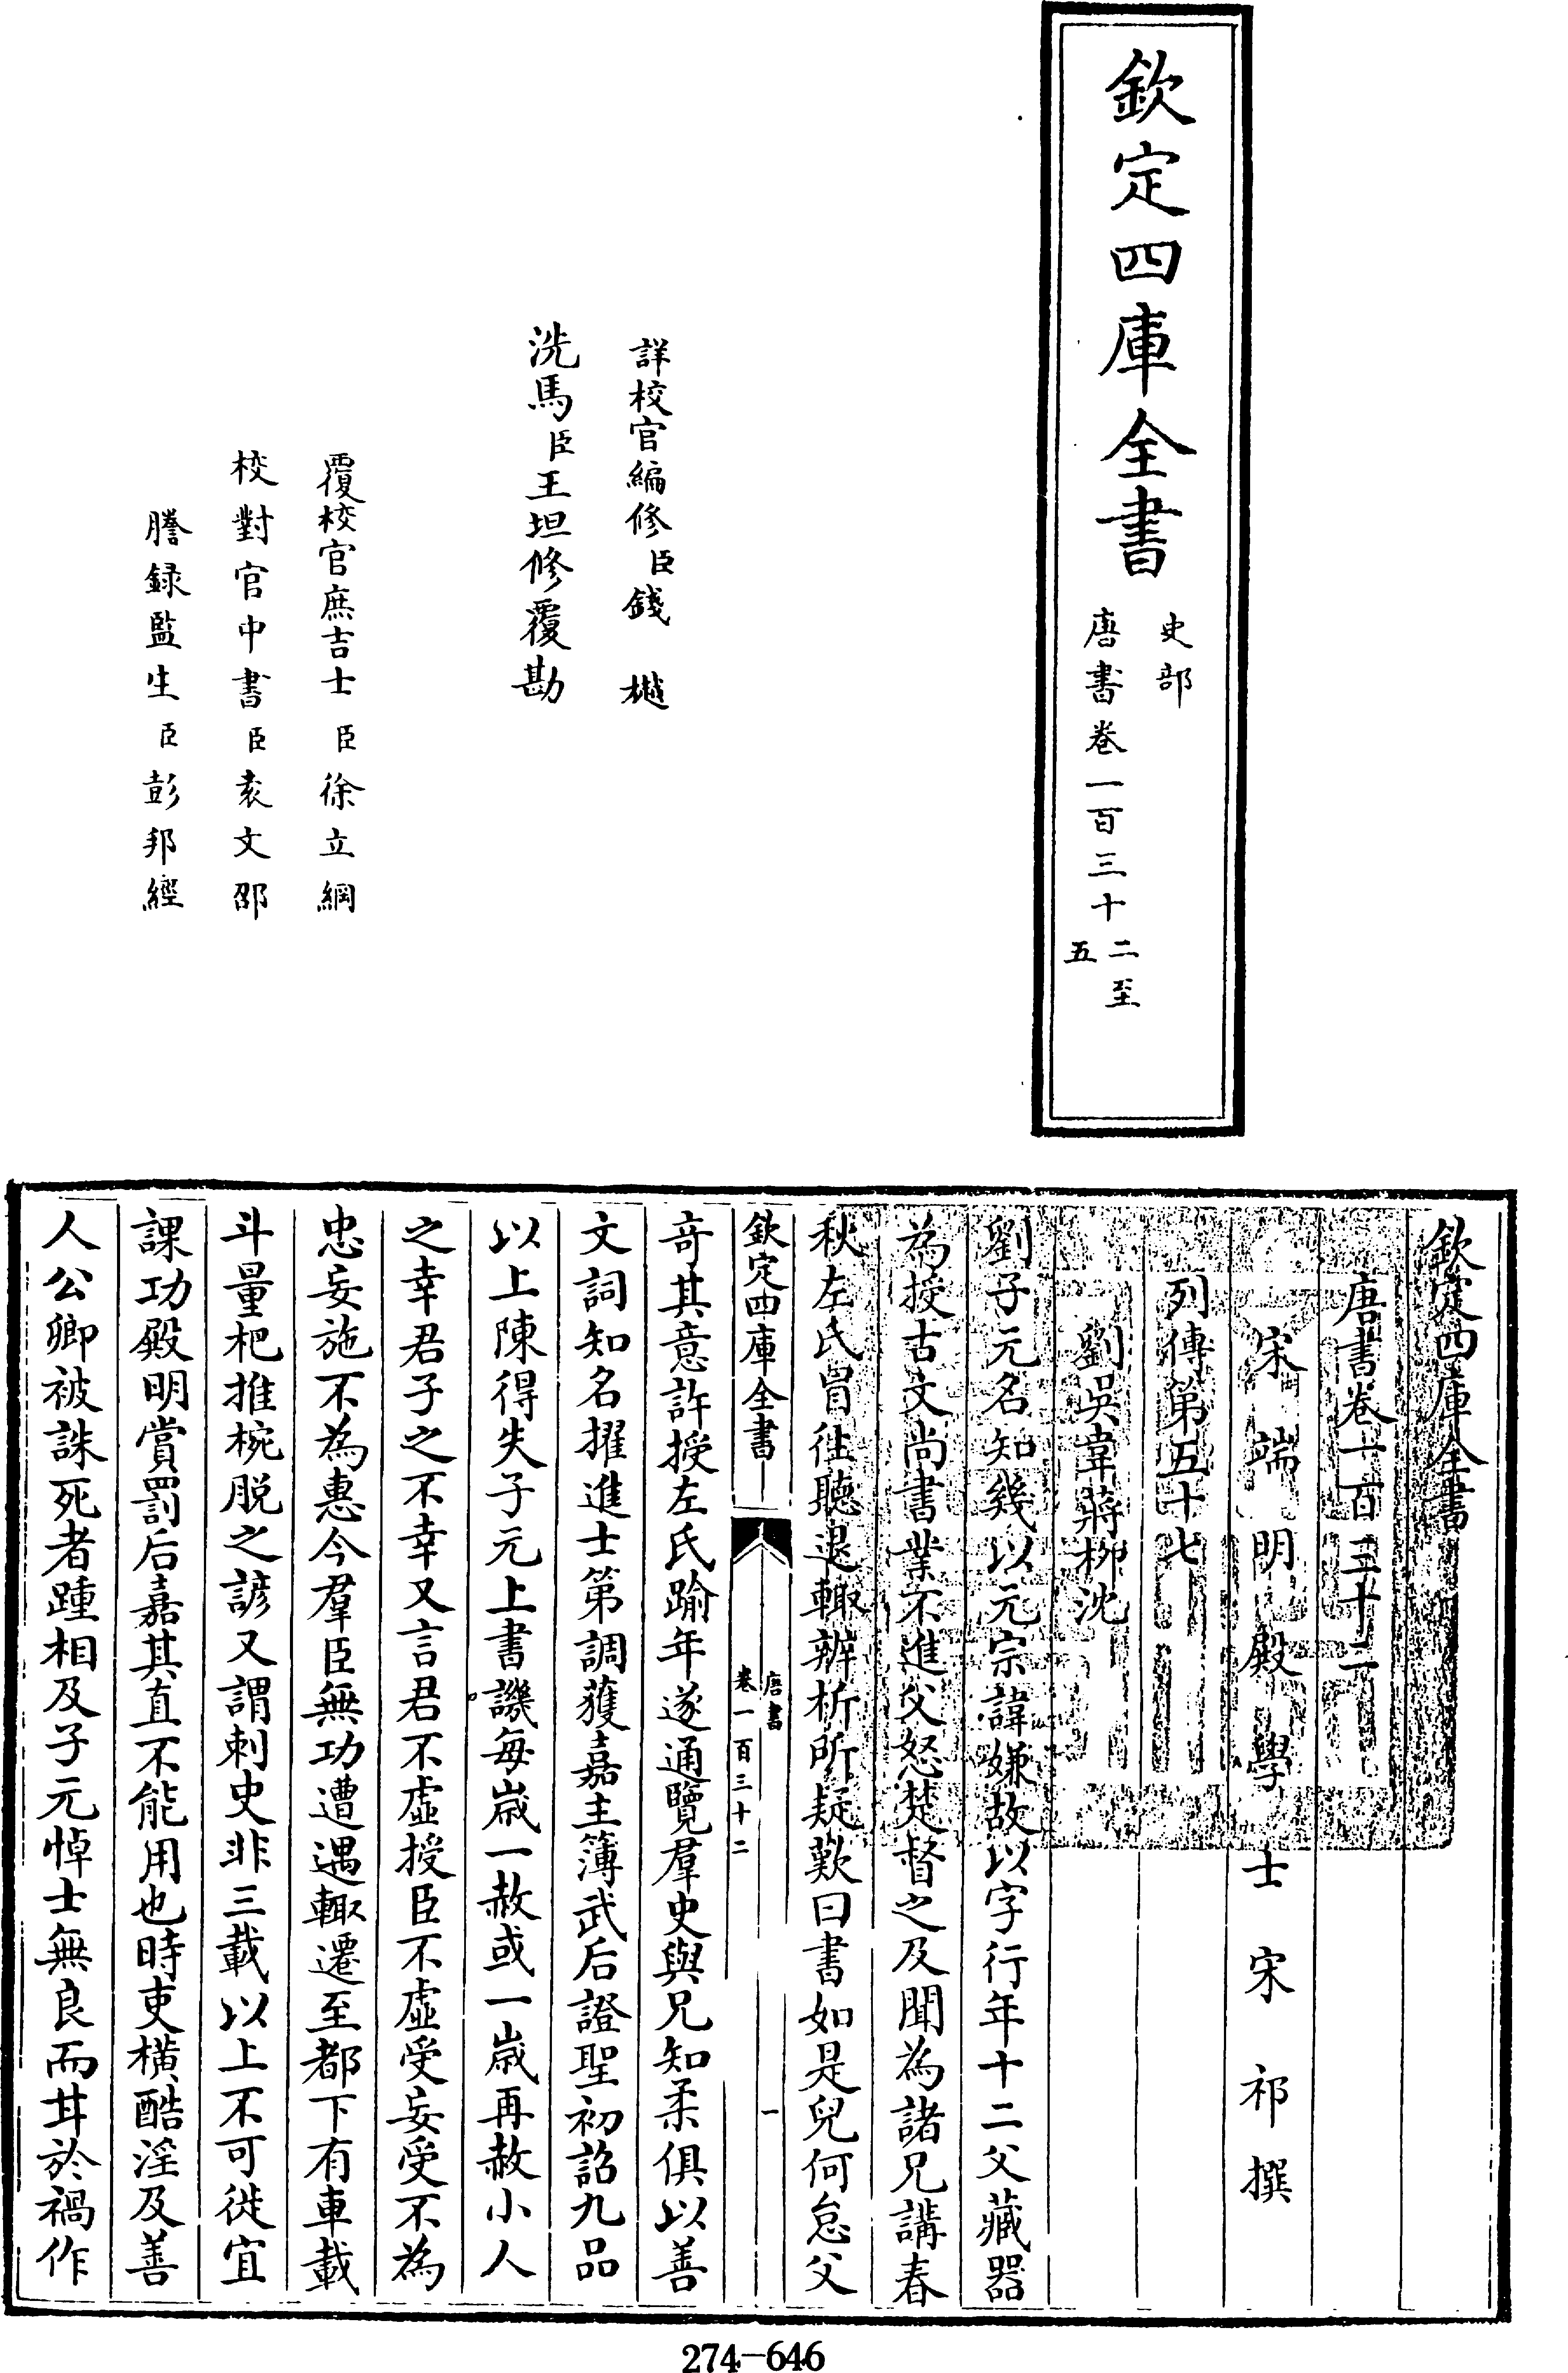 欽定四庫全書
史部
唐書卷一百三十二至
五
詳校官編修臣錢樾
洗馬臣王坦修覆勘
覆校官庶吉士臣徐立綱
校對官中書臣袁文邵
謄録監生臣彭邦經
欽定四庫全書
唐書卷一百三十二
宋端明殿學士宋祁撰
列傳第五十七
劉吳韋蔣柳沈
劉子元名知幾以元宗諱嫌故以字行年十二父藏器
為授古文尚書業不進父怒楚督之及聞為諸兄講春
秋左氏冐往聽退輙辨析所疑歎曰書如是兒何怠父
欽定四庫全書
唐書
卷一百三十二
一
竒其意許授左氏踰年遂通覽羣史與兄知柔俱以善
文詞知名擢進士第調獲嘉主簿武后證聖初詔九品
以上陳得失子元上書譏每歳一赦或一歳再赦小人
之幸君子之不幸又言君不虛授臣不虛受妄受不為
忠妄施不為惠今羣臣無功遭遇輙遷至都下有車載
斗量杷推椀脱之諺又謂刺史非三載以上不可徙宜
課功殿明賞罰后嘉其直不能用也時吏橫酷淫及善
人公卿被誅死者踵相及子元悼士無良而甘於禍作
274-646